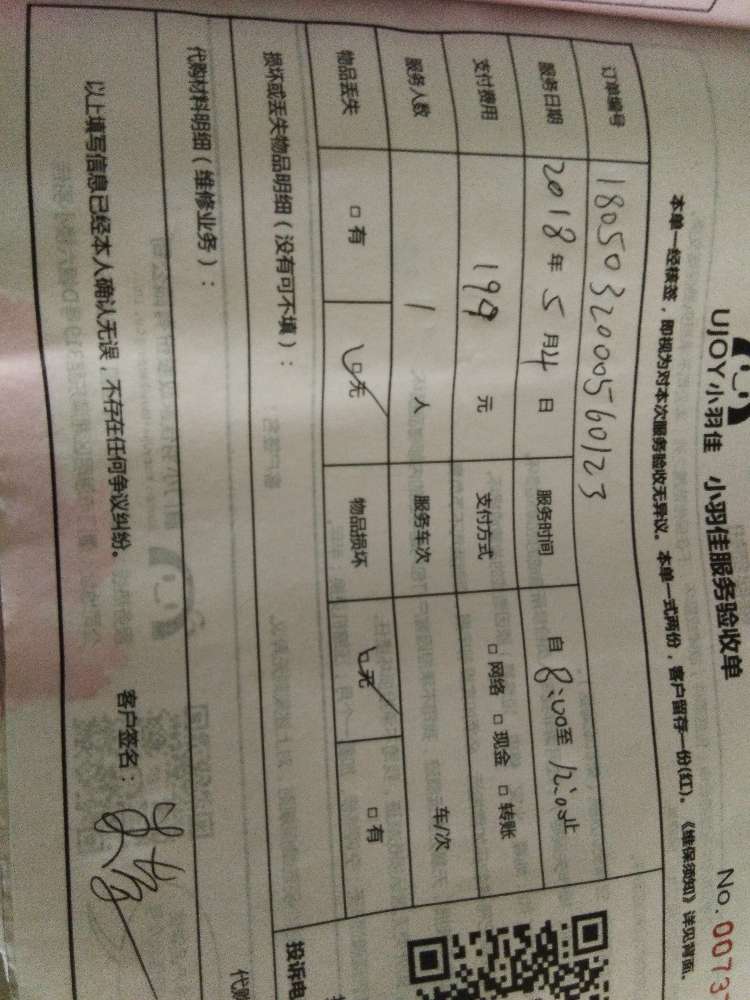 UJOY小羽佳 小羽佳服务验收单 No.0073
本单一经核签，即视为对本次服务验收无异议。本单一式两份，客户留存一份(红)。《维保须知》详见背面。
订单编号 1805032000560123
服务日期 2018年5月4日 服务时间 自8:00至12:00止
支付费用 199元 支付方式 □网络 □现金 □转账
服务人数 1人 服务车次 车/次
物品丢失 □有 □无 物品损坏 □无 □有
损坏或丢失物品明细（没有可不填）：
代购材料明细（维修业务）：
以上填写信息已经本人确认无误，不存在任何争议纠纷。 客户签名：
投诉电
代购